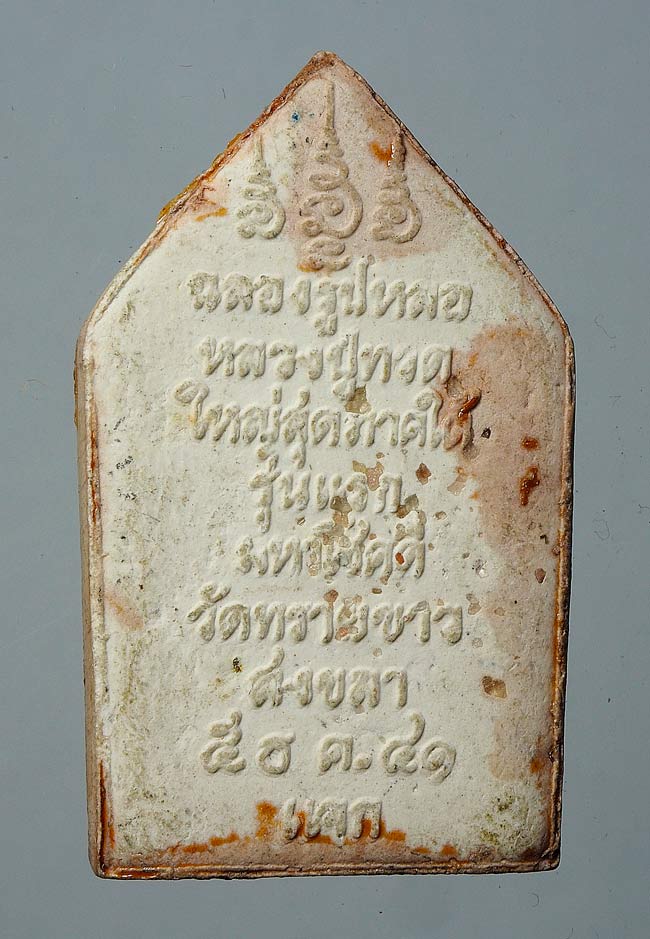 ฉลองรูปหมอ
หลวงปู่ทวด
ใหญ่สุดภาคใต้
รุ่นแรก
มหาโชคดี
วัดทรายขาว
สงขลา
๕ ธ ค. ๔๑
แจก